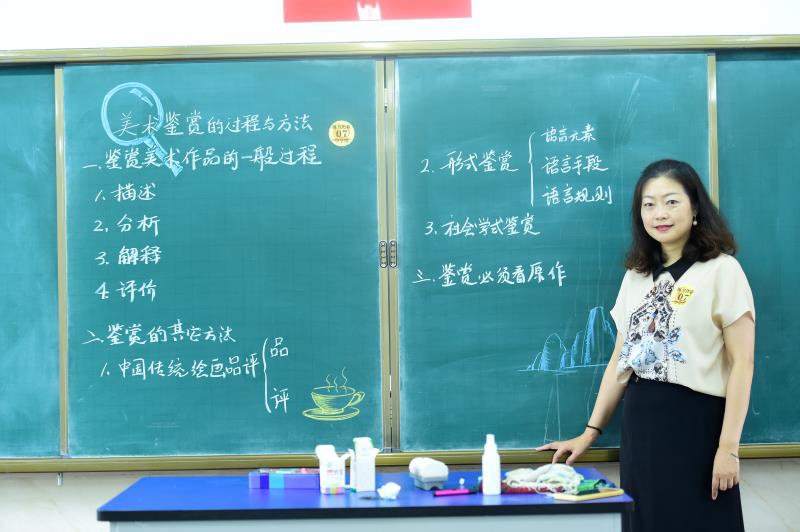 美术鉴赏的过程与方法
07
一、鉴赏美术作品的一般过程
1. 描述
2. 分析
3. 解释
4. 评价
二、鉴赏的其它方法
1. 中国传统绘画品评 { 品
评
2. 形式鉴赏 { 语言元素
语言手段
语言规则
3. 社会学式鉴赏
三、鉴赏必须看原作
07